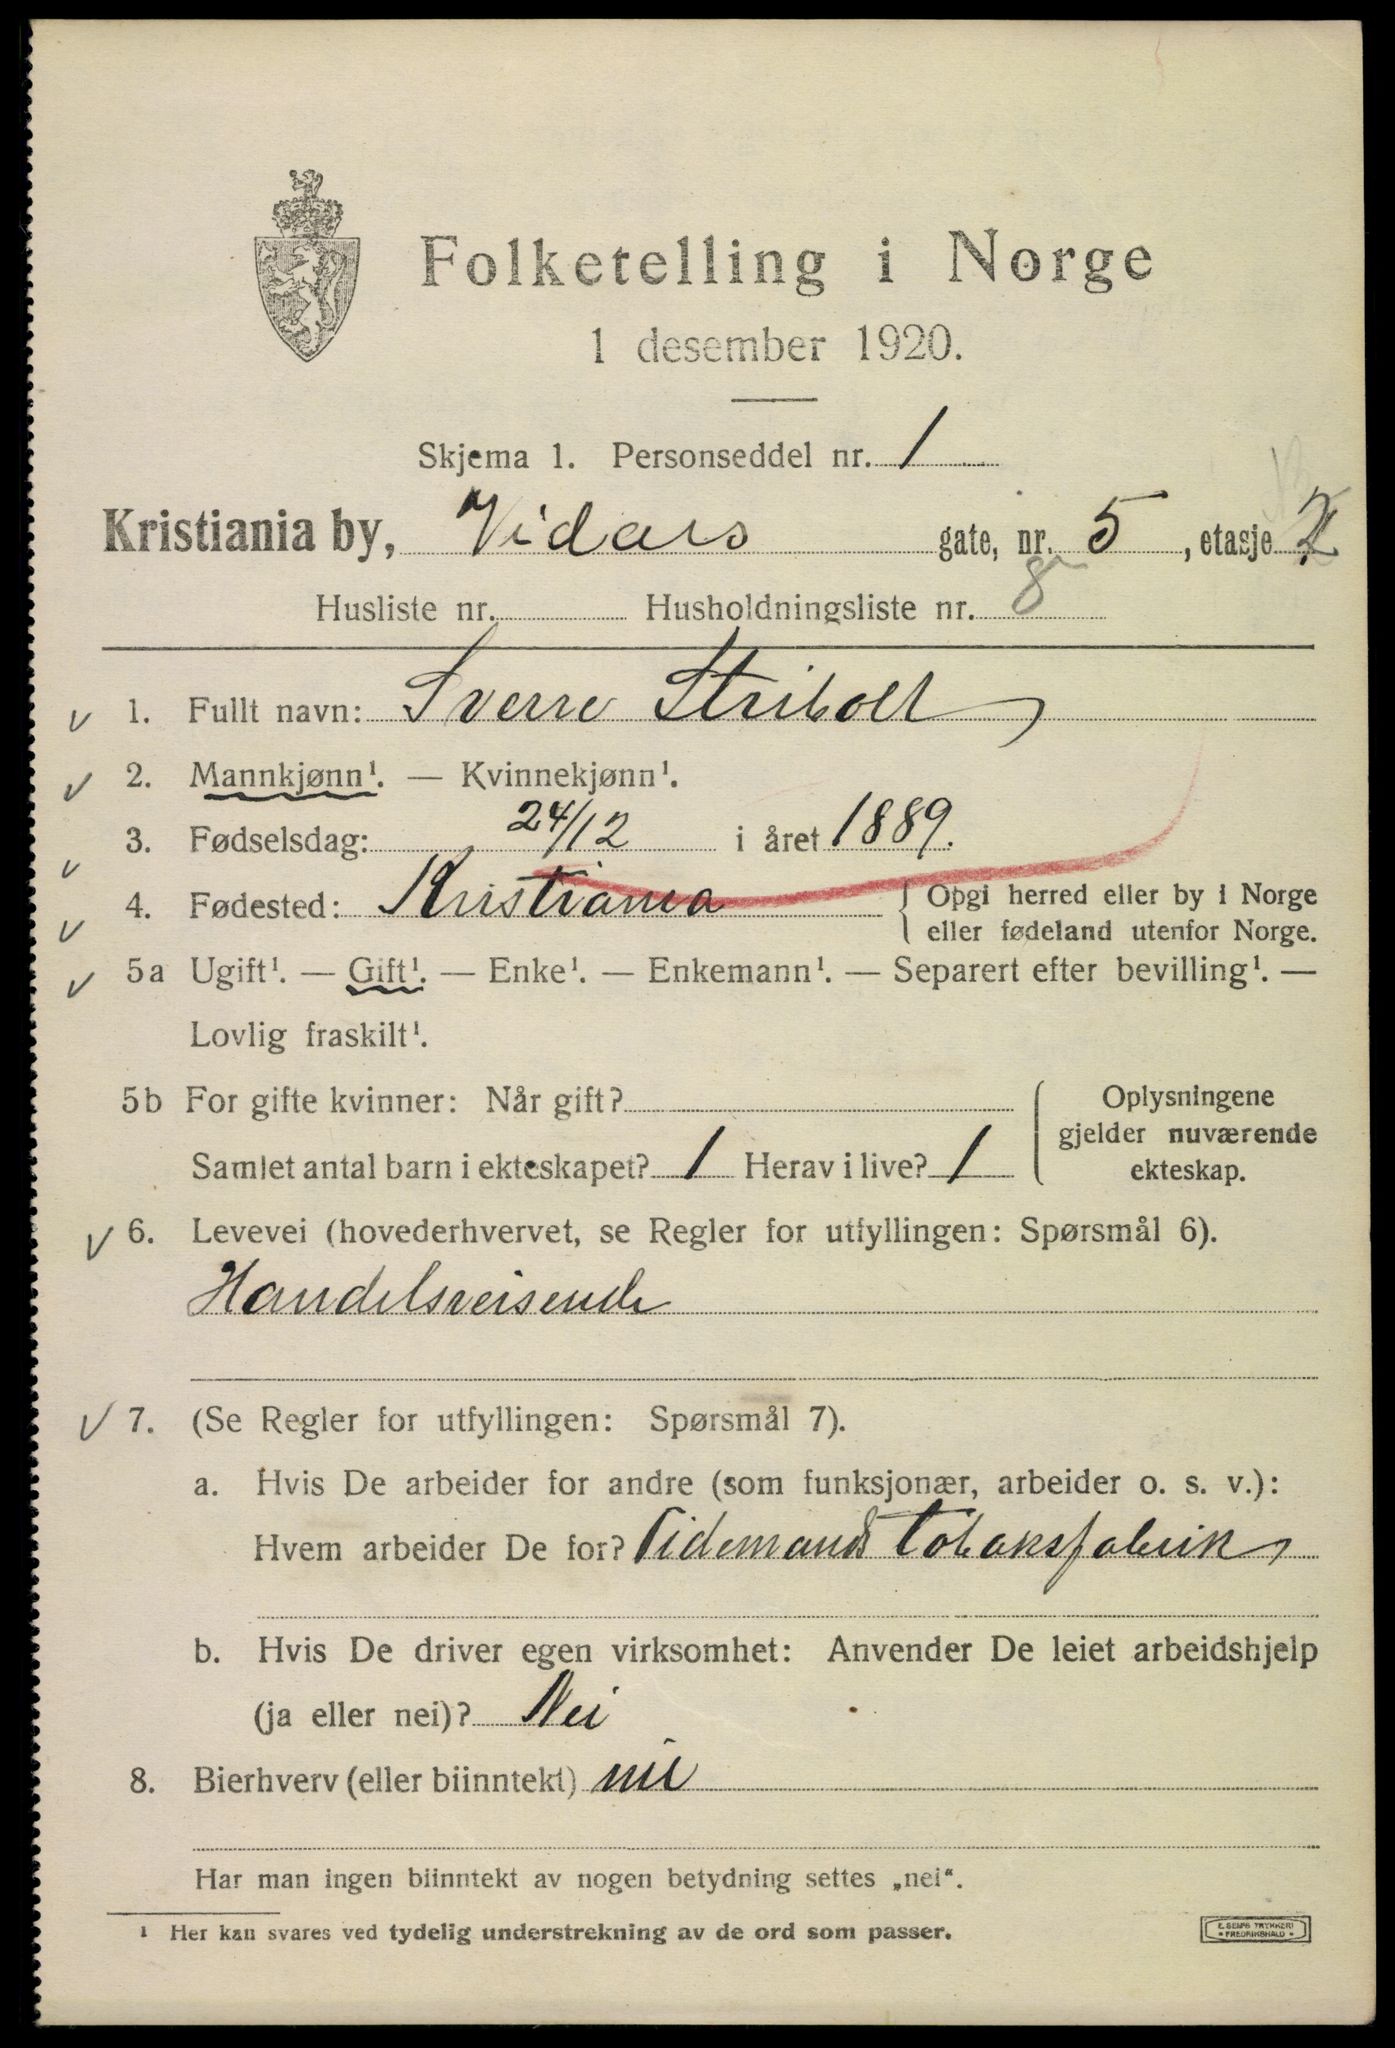 Folketelling i Norge
1 desember 1920.
Skjema 1. Personseddel nr. 1
Kristiania by, Vidars gate, nr. 5, etasje
Husliste nr. Husholdningsliste nr. 8
1. Fullt navn: Sverre Stribolt
2. Mannkjønn¹. — Kvinnekjønn¹.
3. Fødselsdag: 24/12 i året 1889.
4. Fødested: Kristiania { Opgi herred eller by i Norge
eller fødeland utenfor Norge.
5a Ugift¹. — Gift¹. — Enke¹. — Enkemann¹. — Separert efter bevilling¹. —
Lovlig fraskilt¹.
5b For gifte kvinner: Når gift?
Samlet antal barn i ekteskapet? 1 Herav i live? 1
Oplysningene
gjelder nuværende
ekteskap.
6. Levevei (hovederhvervet, se Regler for utfyllingen: Spørsmål 6).
Handelsreisende
7. (Se Regler for utfyllingen: Spørsmål 7).
a. Hvis De arbeider for andre (som funksjonær, arbeider o. s. v.):
Hvem arbeider De for? Tidemands tobaksfabrik
b. Hvis De driver egen virksomhet: Anvender De leiet arbeidshjelp
(ja eller nei)? Nei
8. Bierhverv (eller biinntekt) nei
Har man ingen biinntekt av nogen betydning settes „nei“.
¹ Her kan svares ved tydelig understrekning av de ord som passer.
E. SEMS TRYKKERI
FREDRIKSHALD